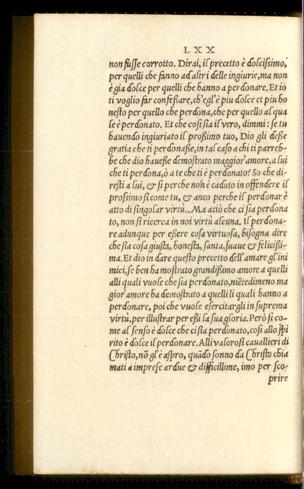 LXX
non fusse corrotto. Dirai, il precetto è dolcissimo,
per quelli che fanno ad altri delle ingiurie, ma non
è gia dolce per quelli che hanno a perdonare. Et io
ti voglio far confessare, ch'egl'è piu dolce et piu ho
nesto per quello che perdona, che per quello al qua
le è perdonato. Et che cosi sia il vero, dimmi: se tu
havendo ingiuriato il proßimo tuo, Dio gli desse
gratia che ti perdonasse, in tal caso a chi ti parreb-
be che dio havesse demostrato maggior'amore, a lui
che ti perdona, ò a te che ti è perdonato? So che di-
resti a lui, & si perche non è caduto in offendere il
prossimo si come tu, & anco perche il perdonar è
atto di singolar virtù. Ma acciò che ci sia perdona
to, non si ricerca in noi virtù alcuna, il perdona-
re adunque per essere cosa virtuosa, bisogna dire
che sia cosa giusta, honesta, santa, suave & felicissi-
ma. Et dio in dare questo precetto dell'amare gl'ini
mici, se ben ha mostrato grandißimo amore a quelli
alli quali vuole che sia perdonato, niẽtedimeno ma
gior'amore ha demostrato a quelli li quali hanno a
perdonare, poi che vuole esercitargli in suprema
virtù, per illustrar per eßi la sua gloria. Però si co-
me al senso è dolce che ci sia perdonato, cosi allo spi
rito è dolce il perdonare. Alli valorosi cavallieri di
Christo, nõ gl'è aspro, quãdo sonno da Christo chia
mati a imprese ardue & difficillime, imo per sco-
prire